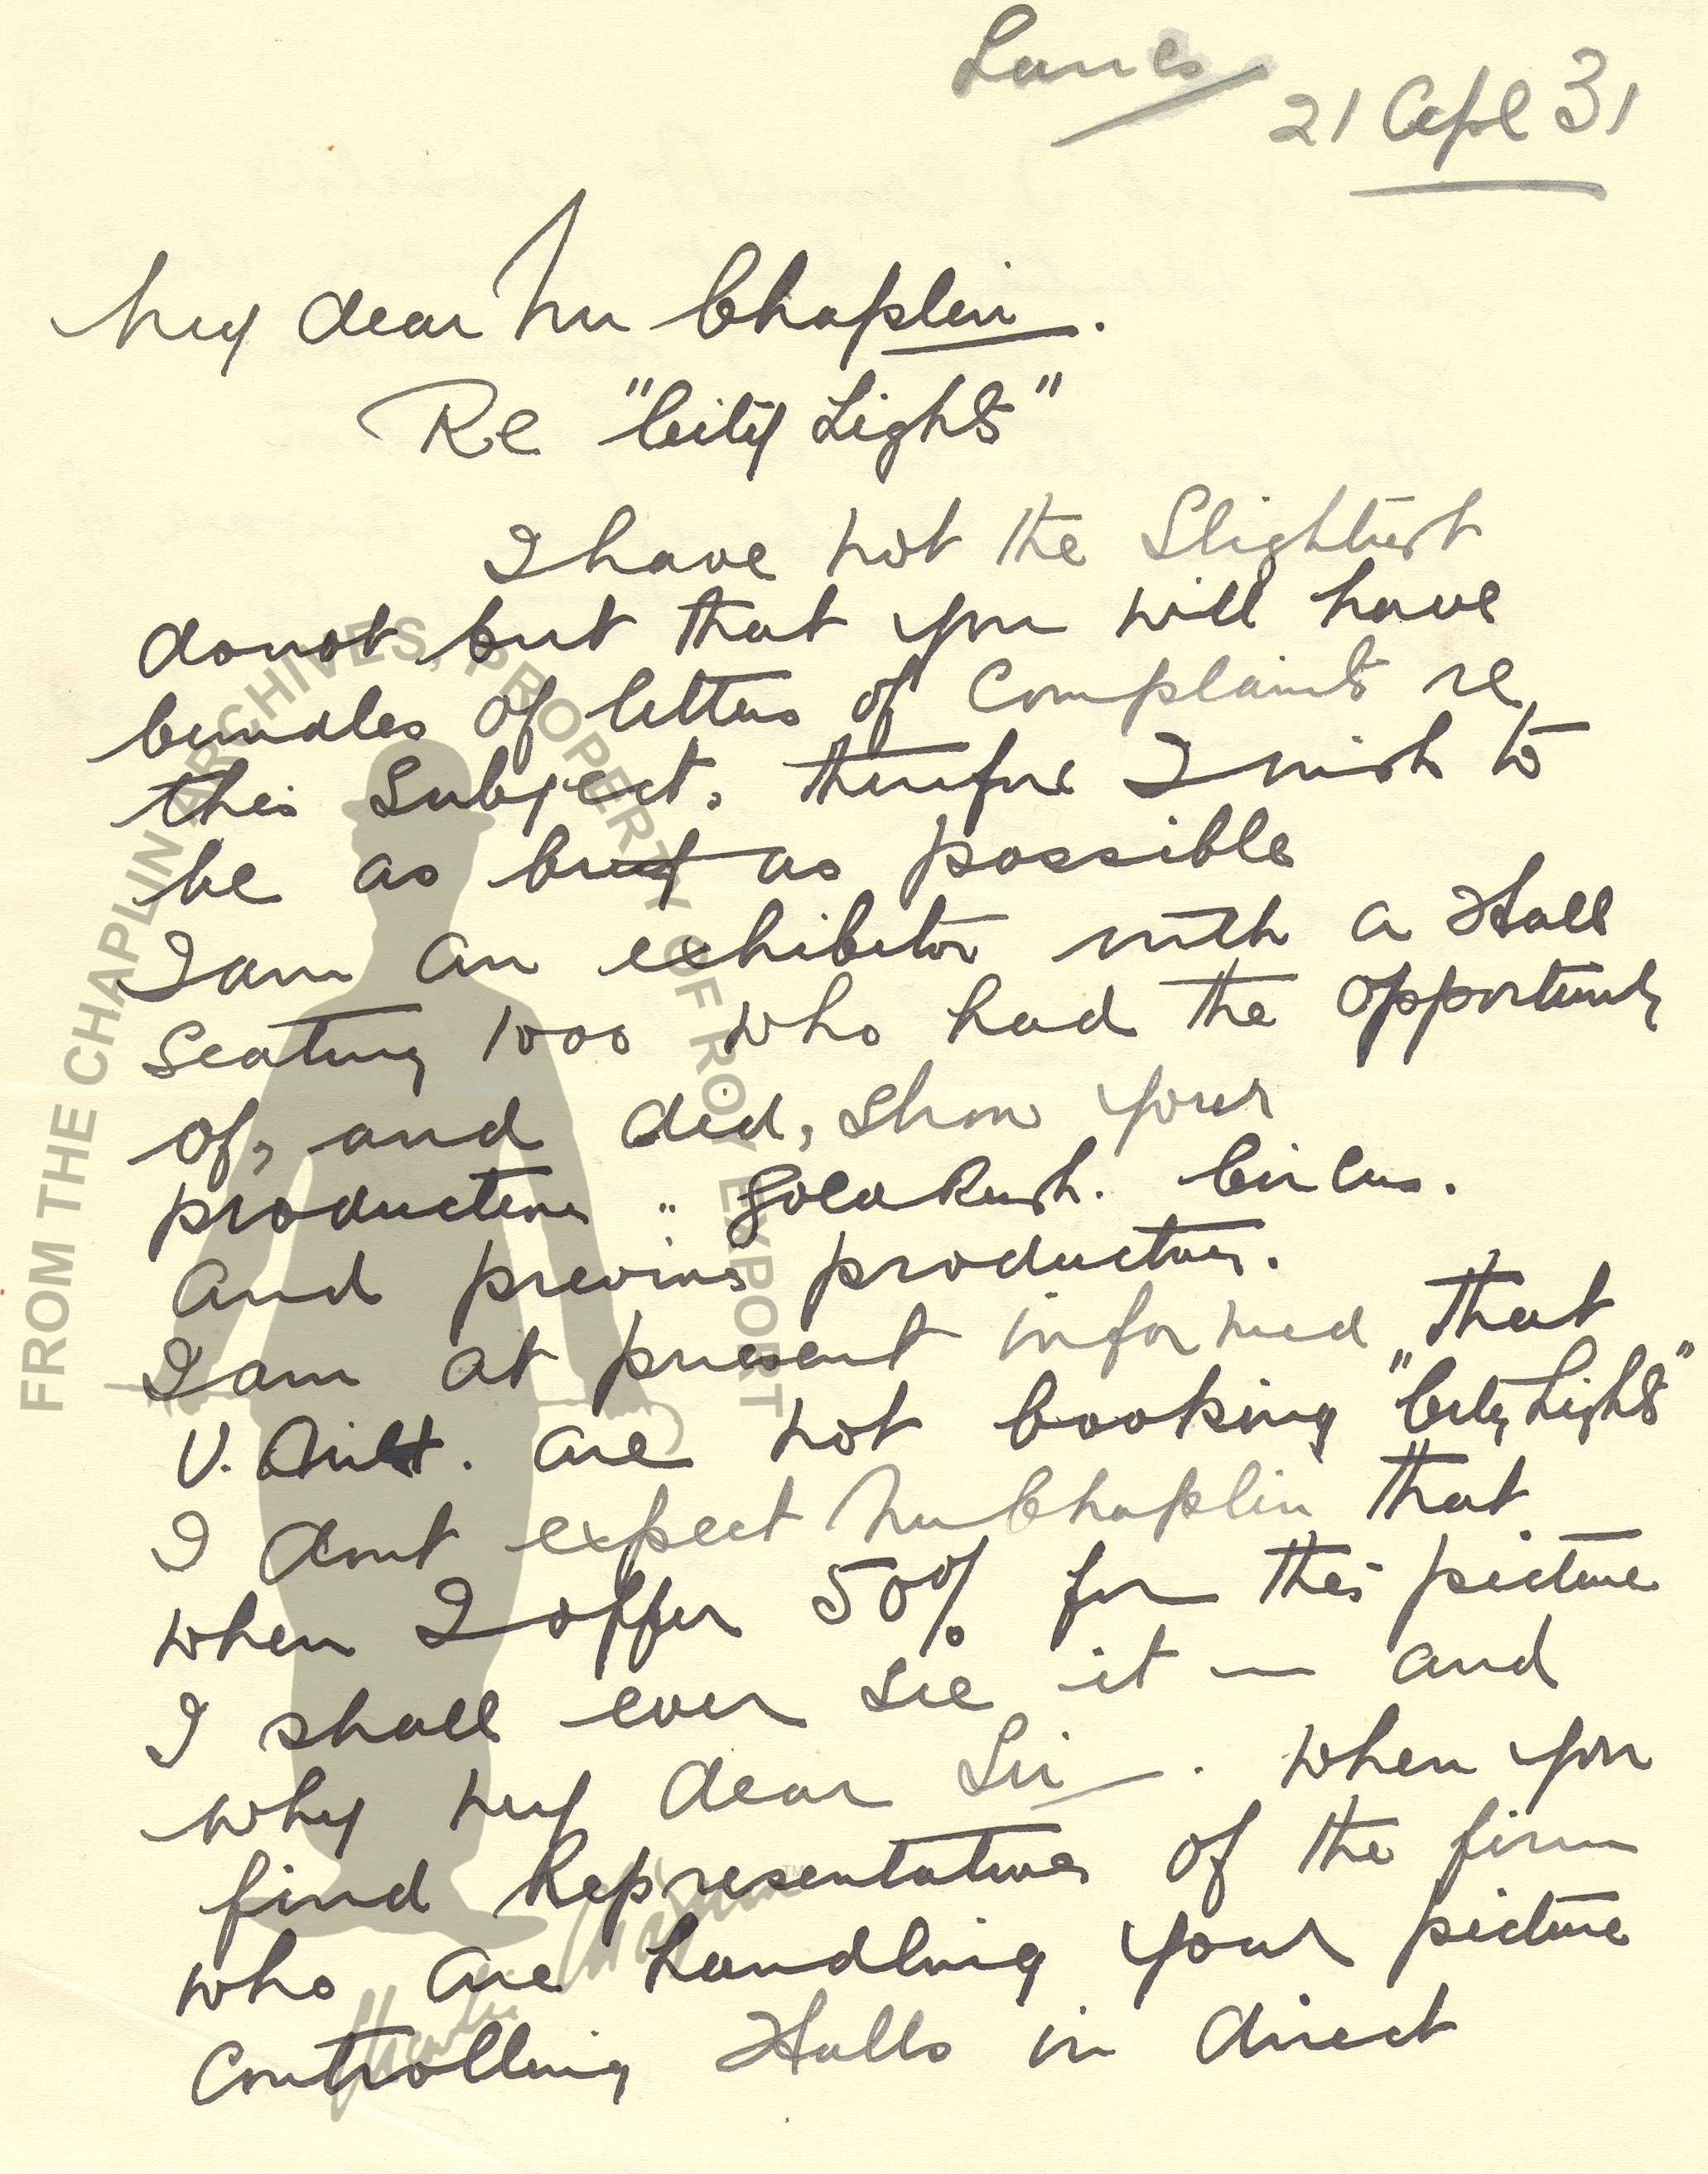 Lancs
21 Apl 31
My dear Mr Chaplin.
Re "City Lights"
I have not the Slightest
doubt but that you will have
bundles of letters of Complaints re
this Subject. therefore I wish to
be as brief as possible
I am an exhibitor with a Hall
Seating 1000 who had the opportunity
of, and did, show your
productions " Gold Rush. Circus.
And previous productions.
I am at present informed that
U. Artist. are not booking "City Lights"
I dont expect Mr Chaplin that
when I offer 50% for this picture
I shall ever see it — and
why my dear Sir. when you
find Representatives of the firm
who are handling your picture
Controlling Halls in direct
FROM THE CHAPLIN ARCHIVES, PROPERTY OF ROY EXPORT
Charlie Chaplin TM